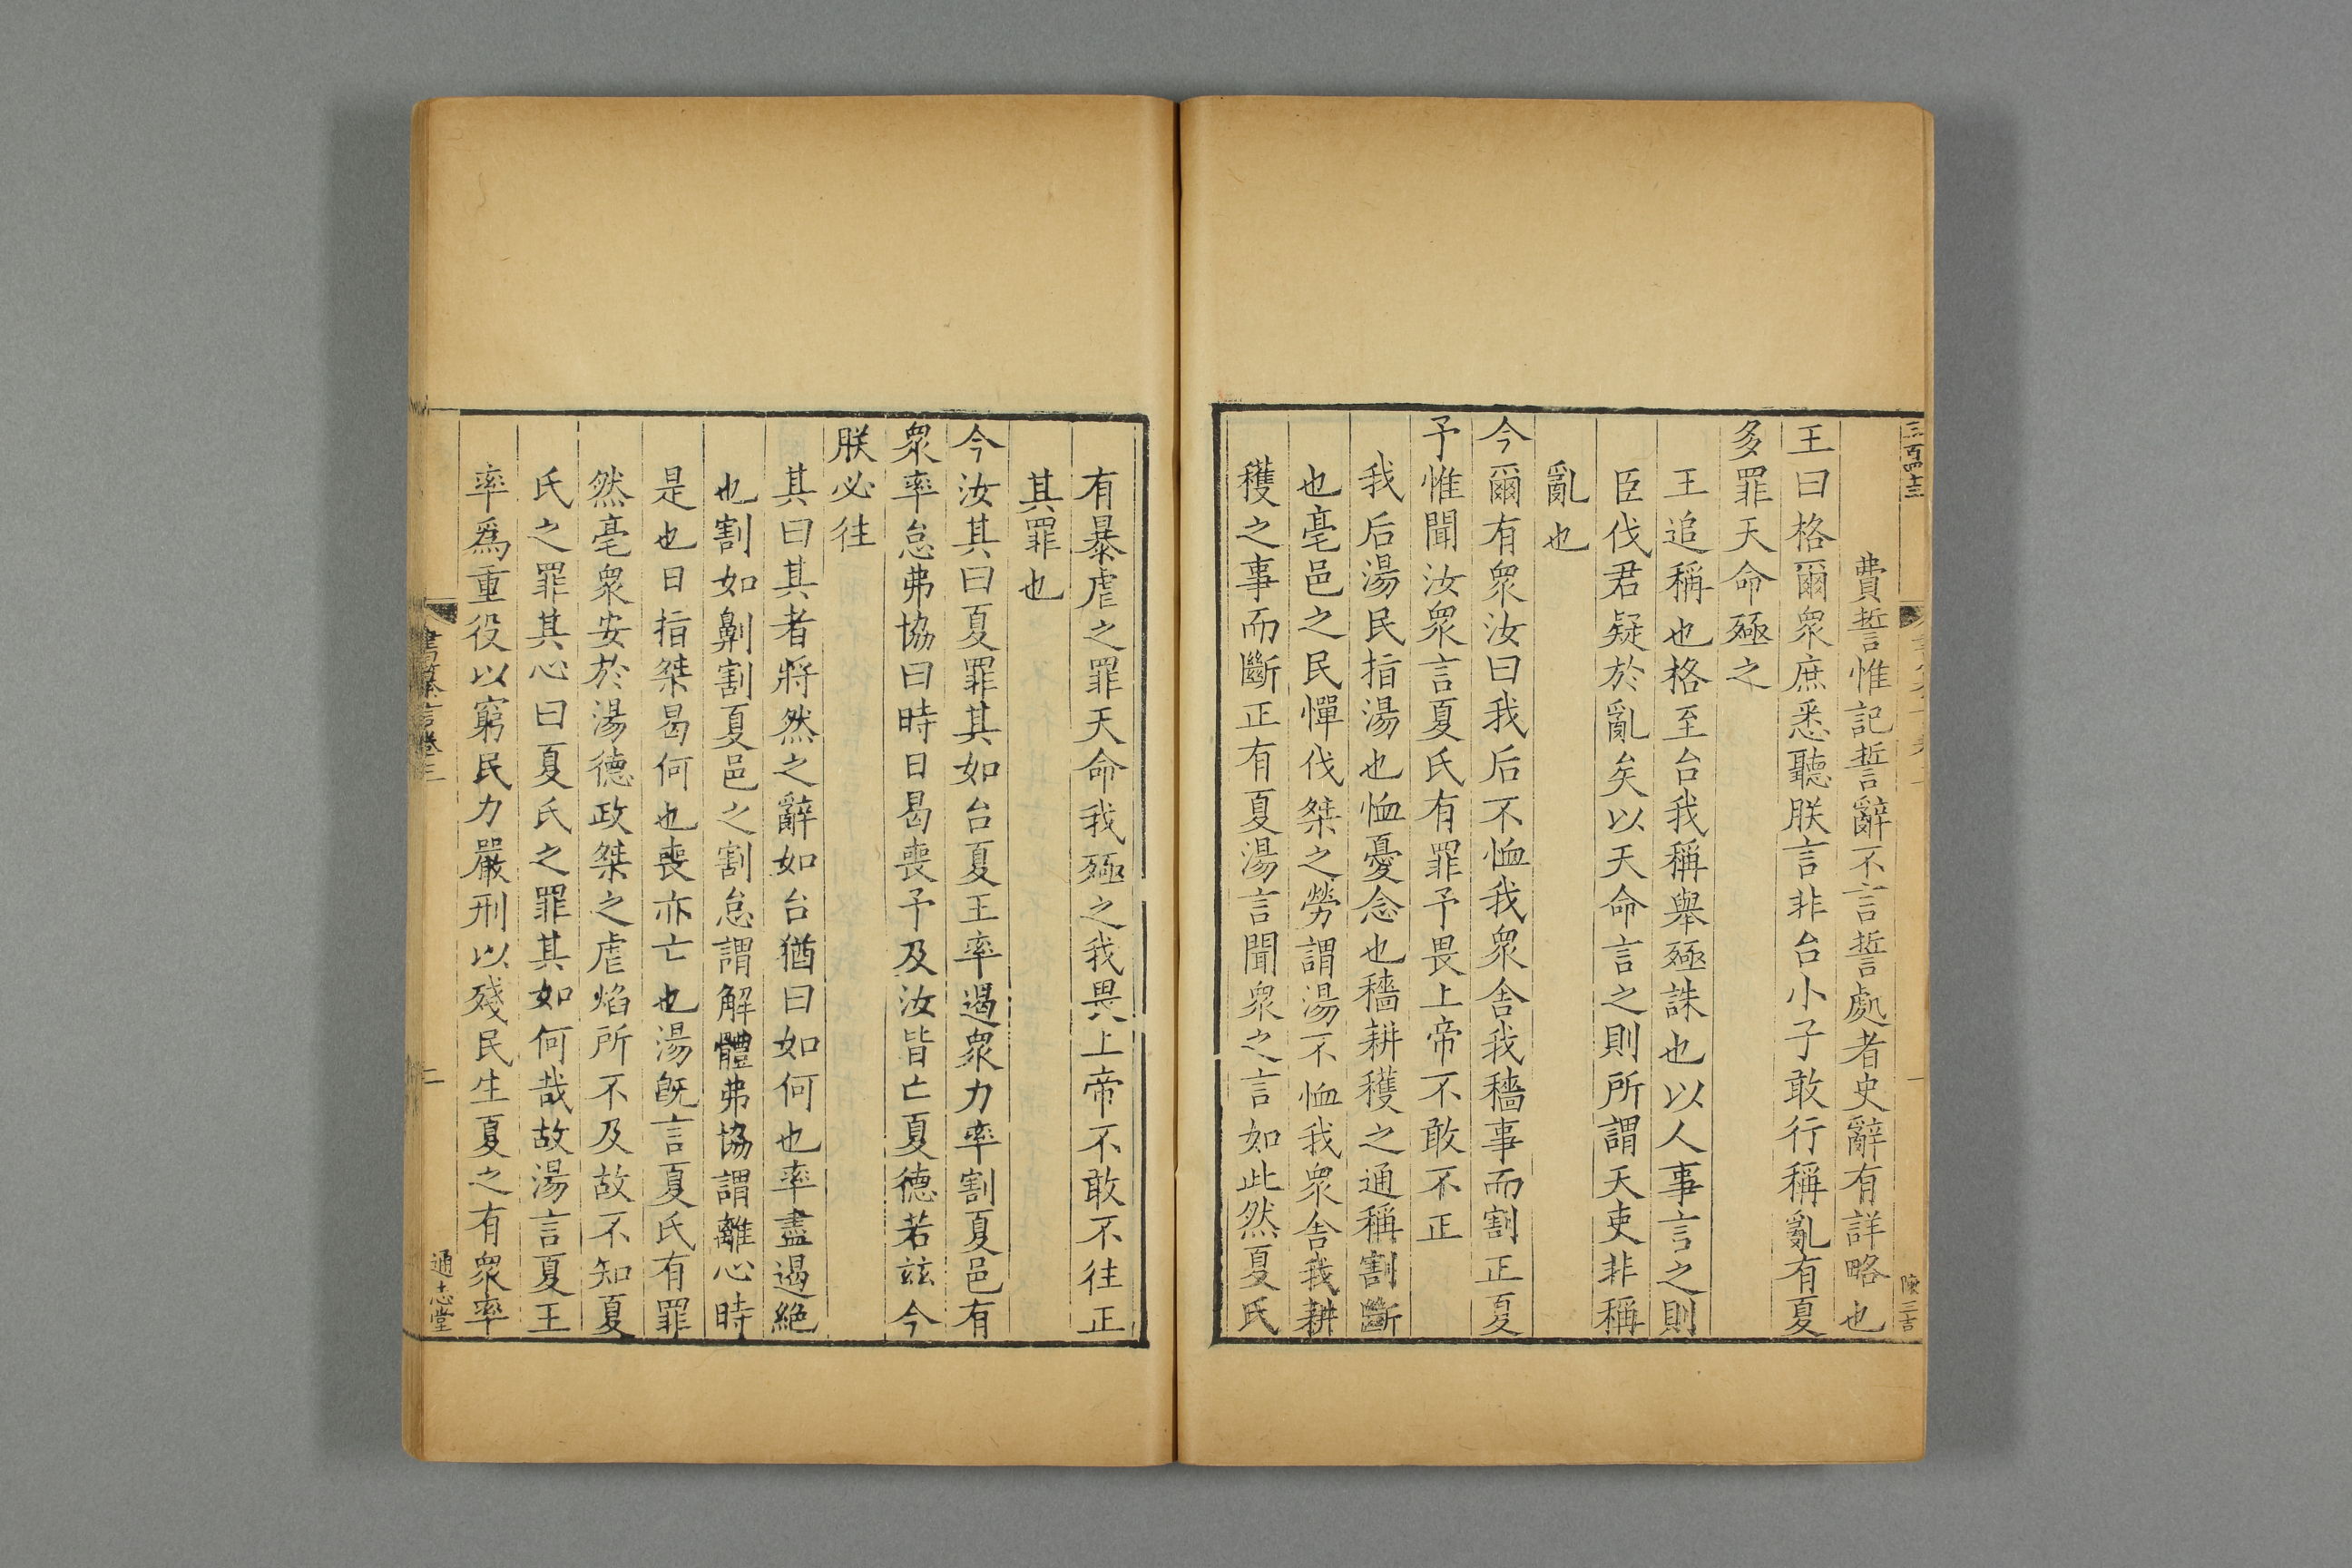 三百四十三
陳三吉
費誓惟記誓辭不言誓處者史辭有詳略也
王曰格爾衆庶悉聽朕言非台小子敢行稱亂有夏
多罪天命殛之
王追稱也格至台我稱舉殛誅也以人事言之則
臣伐君疑於亂矣以天命言之則所謂天吏非稱
亂也
今爾有衆汝曰我后不恤我衆舍我穡事而割正夏
予惟聞汝衆言夏氏有罪予畏上帝不敢不正
我后湯民指湯也恤憂念也穡耕穫之通稱割斷
也亳邑之民憚伐桀之勞謂湯不恤我衆舍我耕
穫之事而斷正有夏湯言聞衆之言如此然夏氏
有暴虐之罪天命我殛之我畏上帝不敢不往正
其罪也
今汝其曰夏罪其如台夏王率遏衆力率割夏邑有
衆率怠弗協曰時日曷喪予及汝皆亡夏德若玆今
朕必往
其曰其者將然之辭如台猶曰如何也率盡遏絶
也割如劓割夏邑之割怠謂解體弗協謂離心時
是也日指桀曷何也喪亦亡也湯旣言夏氏有罪
然亳衆安於湯德政桀之虐焰所不及故不知夏
氏之罪其心曰夏氏之罪其如何哉故湯言夏王
率爲重役以窮民力嚴刑以殘民生夏之有衆率
書纂言卷三
二
通志堂